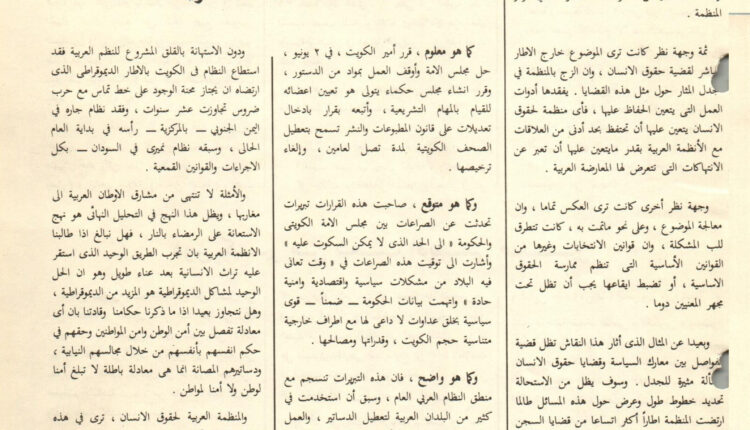 المنظمة .
ثمة وجهة نظر كانت ترى الموضوع خارج الاطار
لقضية حقوق الانسان ، وان الزج بالمنظمة في
المثار حول مثل هذه القضايا . يفقدها أدوات
العمل التى يتعين الحفاظ عليها ، فأى منظمة لحقوق
الانسان يتعين عليها أن تحتفظ بحد أدنى من العلاقات
مع الأنظمة العربية بقدر مايتعين عليها أن تعبر عن
الانتهاكات التى تتعرض لها المعارضة العربية .
وجهة نظر أخرى كانت ترى العكس تماما ، وان
معالجة الموضوع ، وعلى نحو ماتمت به ، كانت تتطرق
للب المشكلة ، وان قوانين الانتخابات وغيرها من
القوانين الأساسية التى تنظم ممارسة الحقوق
الاساسية ، أو تضبط ايقاعها يجب أن تظل تحت
مجهر المعنيين دوما .
وبعيدا عن المثال الذى أثار هذا النقاش تظل قضية
الفواصل بين معارك السياسة وقضايا حقوق الانسان
مسألة مثيرة للجدل . وسوف يظل من الاستحالة
تحديد خطوط طول وعرض حول هذه المسائل طالما
ارتضت المنظمة اطاراً أكثر اتساعا من قضايا السجن
كما هو معلوم ، قرر أمير الكويت ، في ٢ يونيو ،
حل مجلس الامة وأوقف العمل بمواد من الدستور ،
وقرر انشاء مجلس حكماء يتولى هو تعيين اعضائه
للقيام بالمهام التشريعية ، وأتبعه بقرار بادخال
تعديلات على قانون المطبوعات والنشر تسمح بتعطيل
الصحف الكويتية لمدة تصل لعامين ، وإلغاء
ترخيصها .
وكما هو متوقع ، صاحبت هذه القرارات تبريرات
تحدثت عن الصراعات بين مجلس الامة الكويتى
والحكومة « الى الحد الذى لا يمكن السكوت عليه »
وأشارت الى توقيت هذه الصراعات في « وقت تعانى
فيه البلاد من مشكلات سياسية واقتصادية وامنية
حادة » واتهمت بيانات الحكومة ــ ضمناً ــ قوى
سياسية بخلق عداوات لا داعى لها مع اطراف خارجية
متناسية حجم الكويت ، وقدراتها ومصالحها .
وكما هو واضح ، فان هذه التبريرات تنسجم مع
منطق النظام العربي العام ، وسبق أن استخدمت في
كثير من البلدان العربية لتعطيل الدساتير ، والعمل
ودون الاستهانة بالقلق المشروع للنظم العربية فقد
استطاع النظام فى الكويت بالاطار الديموقراطى الذى
ارتضاه ان يجتاز محنة الوجود على خط تماس مع حرب
ضروس تجاوزت عشر سنوات ، وفقد نظام جاره في
اليمن الجنوبي ــ بالمركزية ــ رأسه في بداية العام
الحالى ، وسبقه نظام نميرى في السودان ــ بكل
الاجراءات والقوانين القمعية .
والأمثلة لا تنتهى من مشارق الأوطان العربية الى
مغاربها ، ويظل هذا النهج في التحليل النهائى هو نهج
الاستعانة على الرمضاء بالنار ، فهل نبالغ اذا طالبنا
الانظمة العربية بان تجرب الطريق الوحيد الذى استقر
عليه تراث الانسانية بعد عناء طويل وهو ان الحل
الوحيد لمشاكل الديموقراطية هو المزيد من الديموقراطية ،
وهل نتجاوز بعيدا اذا ما ذكرنا حكامنا وقادتنا بان أى
معادلة تفصل بين أمن الوطن وامن المواطنين وحقهم في
حكم انفسهم بأنفسهم من خلال مجالسهم النيابية ،
ودساتيرهم المصانة انما هى معادلة باطلة لا تبلغ أمنا
لوطن ولا أمنا لمواطن .
والمنظمة العربية لحقوق الانسان ، ترى في هذه